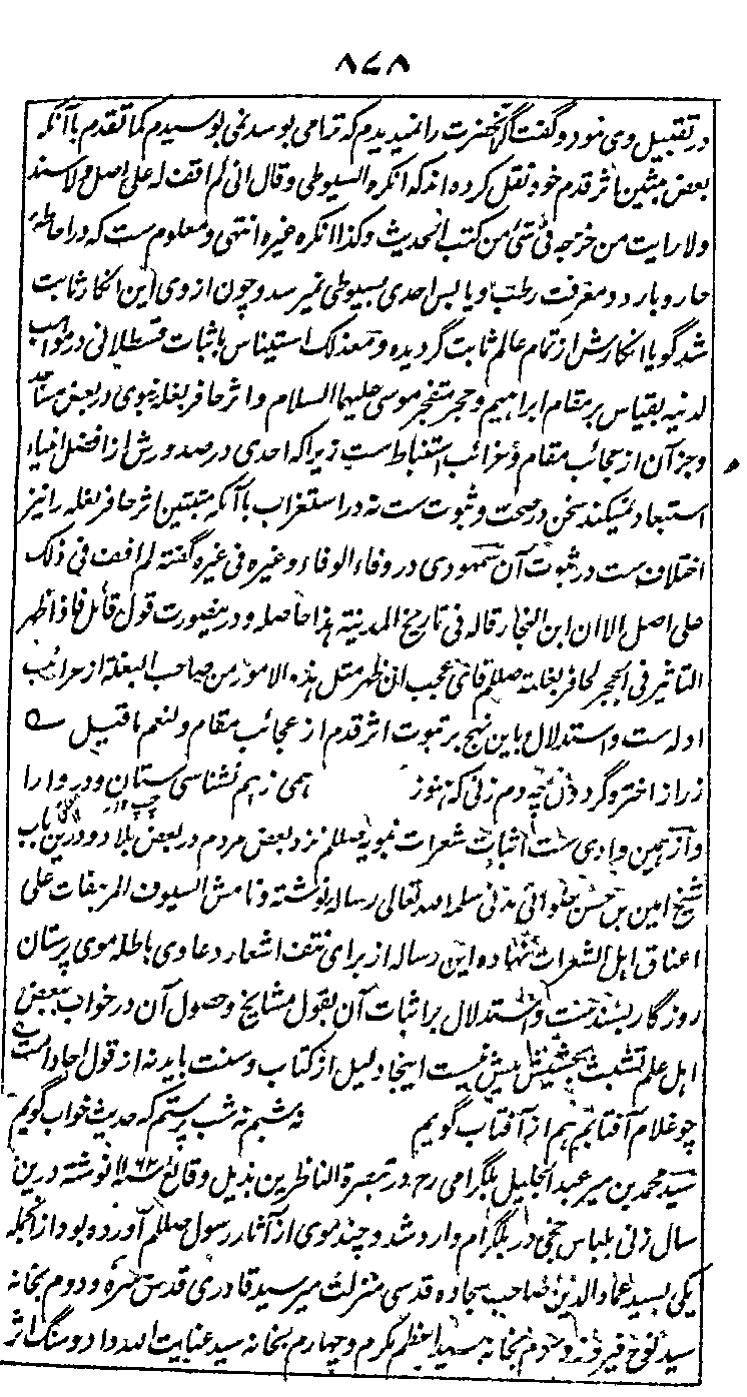 ۸۷۸
در تقبیل وی نمود و گفت اگر آنحضرت را نمیدیدم که ترا می بوسد نمی بوسیدم کما تقدم باآنکه
بعض مثبتین اثر قدم خود نقل کرده اند که انکره السیوطی وقال انی لم اقف له علی اصل ولا سند
ولا رایت من خرجه فی شئ من کتب الحدیث وکذا انکره غیره انتهی ومعلوم ست که در احاطهٔ
حار و بارد و معرفت رطب و یابس احدی بسیوطی نمیرسد و چون از وی این انکار ثابت
شد گویا انکارش از تمام عالم ثابت گردیده و معذلک استیناس باثبات قسطلانی در مواهب
لدنیه بقیاس بر مقام ابراهیم و حجر متفجر موسی علیهما السلام و اثر حافر بغله نبوی در بعض مساجد
وجز آن از عجائب مقام و غرائب استنباط ست زیراکه احدی در صدورش از افضل انبیاء
استبعاد نمیکند سخن در صحت و ثبوت ست نه در استغراب باآنکه مثبتین اثر حافر بغله را نیز
اختلاف ست در ثبوت آن سمهودی در وفاء الوفاء وغیره فی غیره گفته لم اقف فی ذلک
علی اصل الا ان ابن النجار قاله فی تاریخ المدینة هذا حاصله و درینصورت قول قائل فاذا ظهر
التاثیر فی الحجر لحافر بغلته صللم فای عجب ان ظهر مثل هذه الامور من صاحب البغلة از غرائب
ادله ست و استدلال باین نهج بر ثبوت اثر قدم از عجائب مقام ولنعم ما قیل ـه
ز راز اختر و گردون چه دم زنی که هنوز همی ز هم نشناسی ستان و دروا را
و از همین وادی ست اثبات شعرات نبویه صللم نزد بعض مردم در بعض بلاد و درین باب
شیخ امین بن حسن حلوانی مدنی سلمه الله تعالی رساله نوشته و نامش السیوف المرهفات علی
اعناق اهل الشعرات نهاده این رساله از برای نتف اشعار دعاوی باطله موی پرستان
روزگار بسند ست و استدلال بر اثبات آن بقول مشایخ و حصول آن در خواب ببعض
اهل علم تشبث بحشیش بیش نیست اینجا دلیل از کتاب و سنت باید نه از قول احاد امت
چو غلام آفتابم هم از آفتاب گویم نه شبم نه شب پرستم که حدیث خواب گویم
سید محمد بن میر عبد الجلیل بلگرامی رح در تبصرة الناظرین بذیل وقائع سنه ۱۱۶۲ نوشته درین
سال زنی بلباس حجی در بلگرام وارد شد و چند موی از آثار رسول صللم آورده بود از انجمله
یکی بسید عماد الدین صاحب سجاده قدسی منزلت میر سید قادری قدس سره و دوم بخانه
سید نوح فیروز و سوم بخانه سید اعظم مکرم و چهارم بخانه سید عنایت الله داد و سنگ اثر